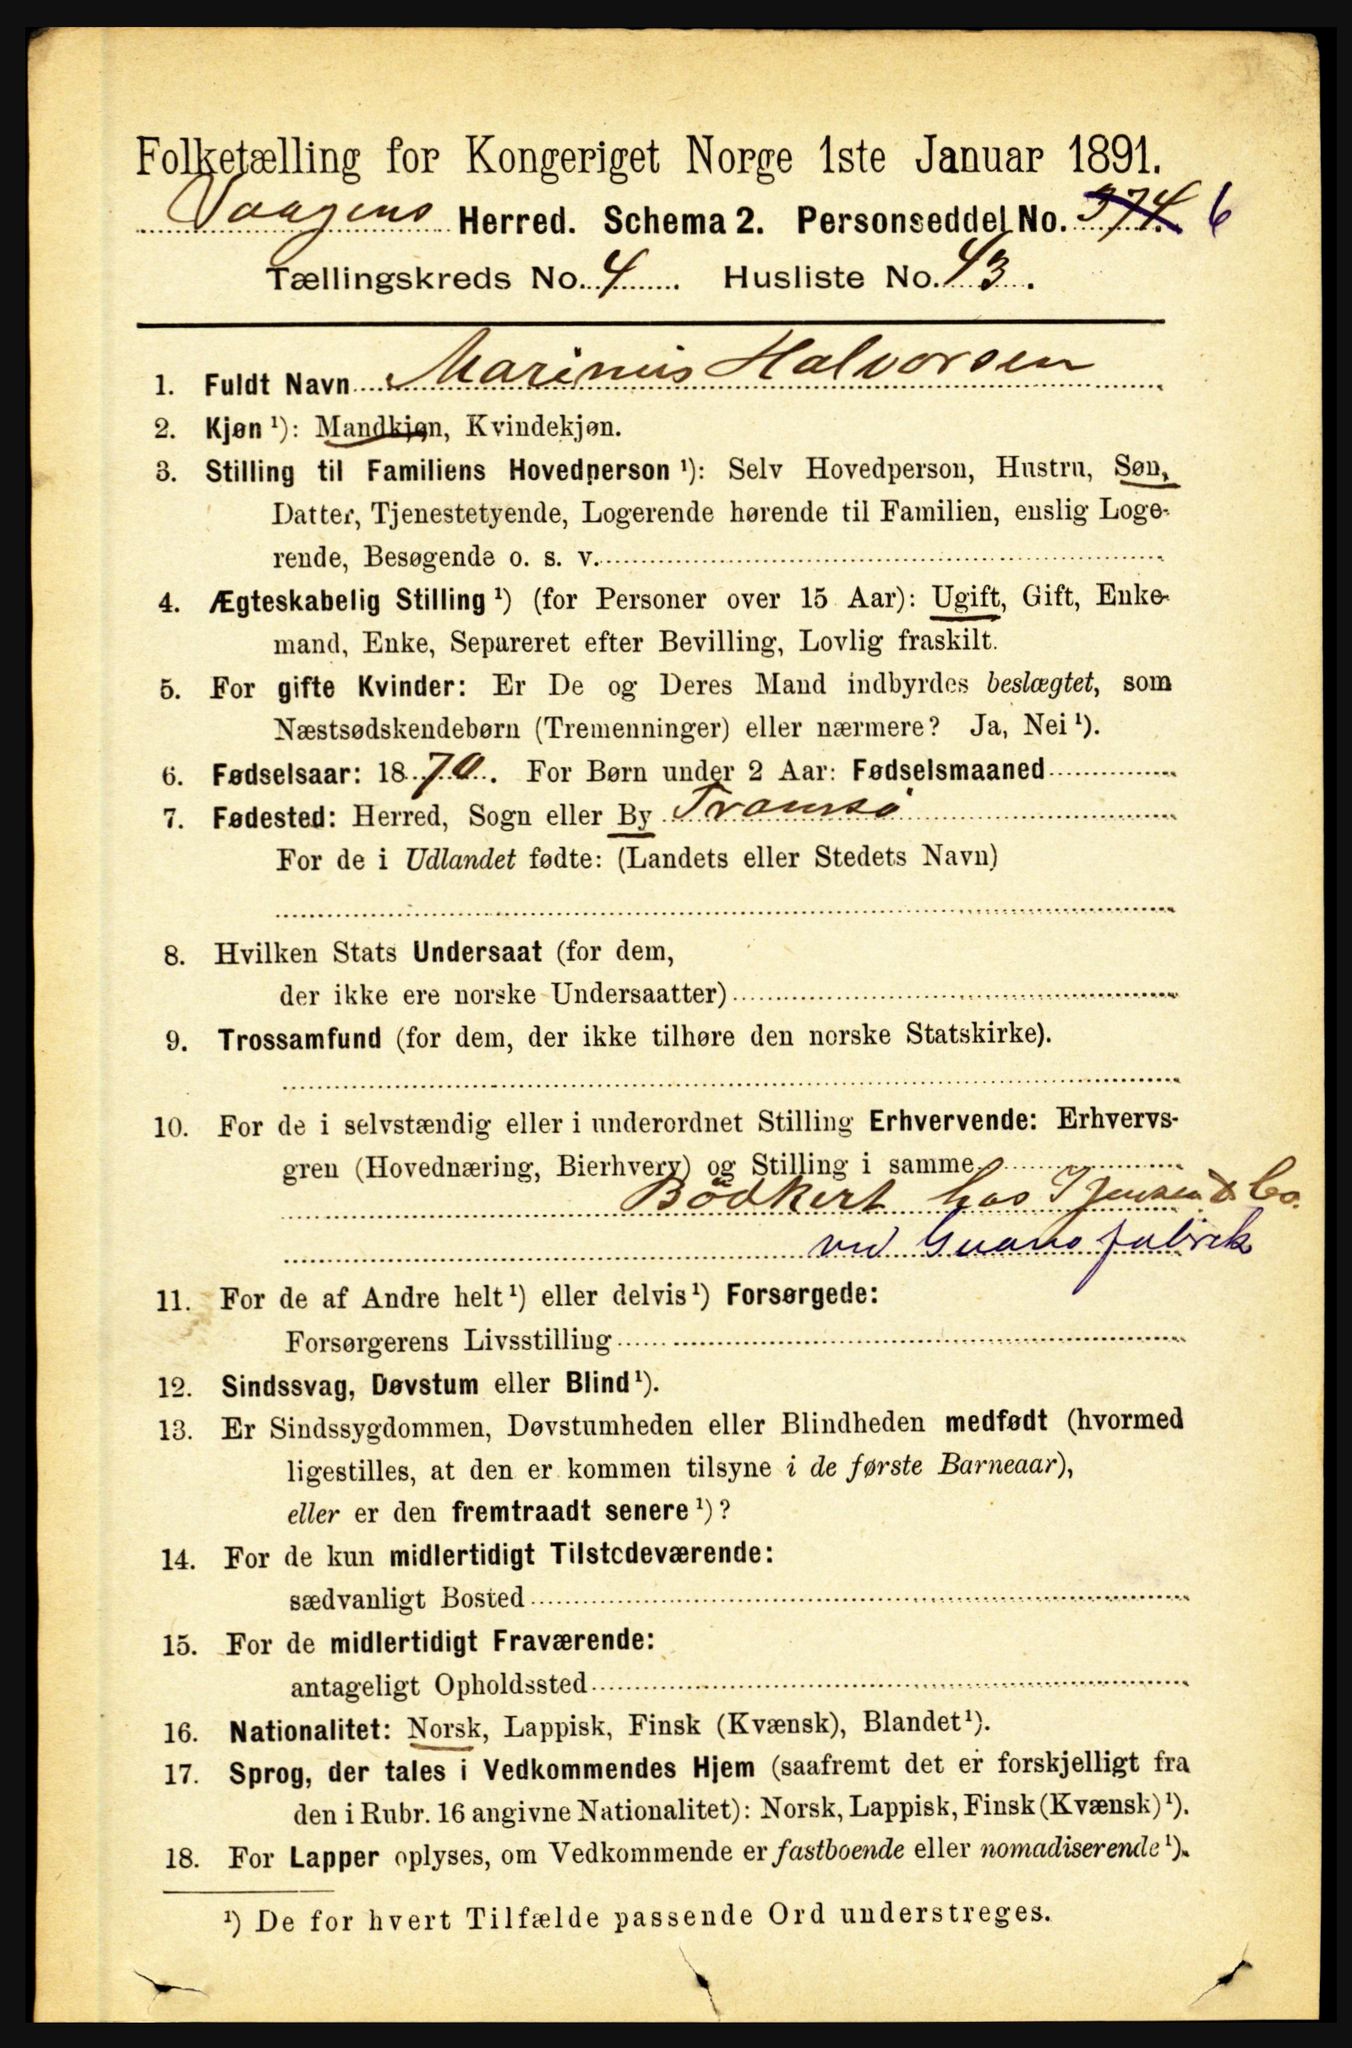 Folketælling for Kongeriget Norge 1ste Januar 1891.
Vaagens Herred. Schema 2. Personseddel No. 374 6
Tællingskreds No. 4. Husliste No. 43.
1. Fuldt Navn Marinus Halvorsen
2. Kjøn ¹): Mandkjøn, Kvindekjøn.
3. Stilling til Familiens Hovedperson ¹): Selv Hovedperson, Hustru, Søn,
Datter, Tjenestetyende, Logerende hørende til Familien, enslig Loge-
rende, Besøgende o. s. v.
4. Ægteskabelig Stilling ¹) (for Personer over 15 Aar): Ugift, Gift, Enke-
mand, Enke, Separeret efter Bevilling, Lovlig fraskilt.
5. For gifte Kvinder: Er De og Deres Mand indbyrdes beslægtet, som
Næstsødskendebørn (Tremenninger) eller nærmere? Ja, Nei ¹).
6. Fødselsaar: 1870. For Børn under 2 Aar: Fødselsmaaned
7. Fødested: Herred, Sogn eller By Tromsø
For de i Udlandet fødte: (Landets eller Stedets Navn)
8. Hvilken Stats Undersaat (for dem,
der ikke ere norske Undersaatter)
9. Trossamfund (for dem, der ikke tilhøre den norske Statskirke).
10. For de i selvstændig eller i underordnet Stilling Erhvervende: Erhvervs-
gren (Hovednæring, Bierhverv) og Stilling i samme
Bödkert hos Jensen & Co.
ved Guano fabrik
11. For de af Andre helt ¹) eller delvis ¹) Forsørgede:
Forsørgerens Livsstilling
12. Sindssvag, Døvstum eller Blind ¹).
13. Er Sindssygdommen, Døvstumheden eller Blindheden medfødt (hvormed
ligestilles, at den er kommen tilsyne i de første Barneaar),
eller er den fremtraadt senere ¹)?
14. For de kun midlertidigt Tilstedeværende:
sædvanligt Bosted
15. For de midlertidigt Fraværende:
antageligt Opholdssted
16. Nationalitet: Norsk, Lappisk, Finsk (Kvænsk), Blandet ¹).
17. Sprog, der tales i Vedkommendes Hjem (saafremt det er forskjelligt fra
den i Rubr. 16 angivne Nationalitet): Norsk, Lappisk, Finsk (Kvænsk) ¹).
18. For Lapper oplyses, om Vedkommende er fastboende eller nomadiserende ¹).
¹) De for hvert Tilfælde passende Ord understreges.